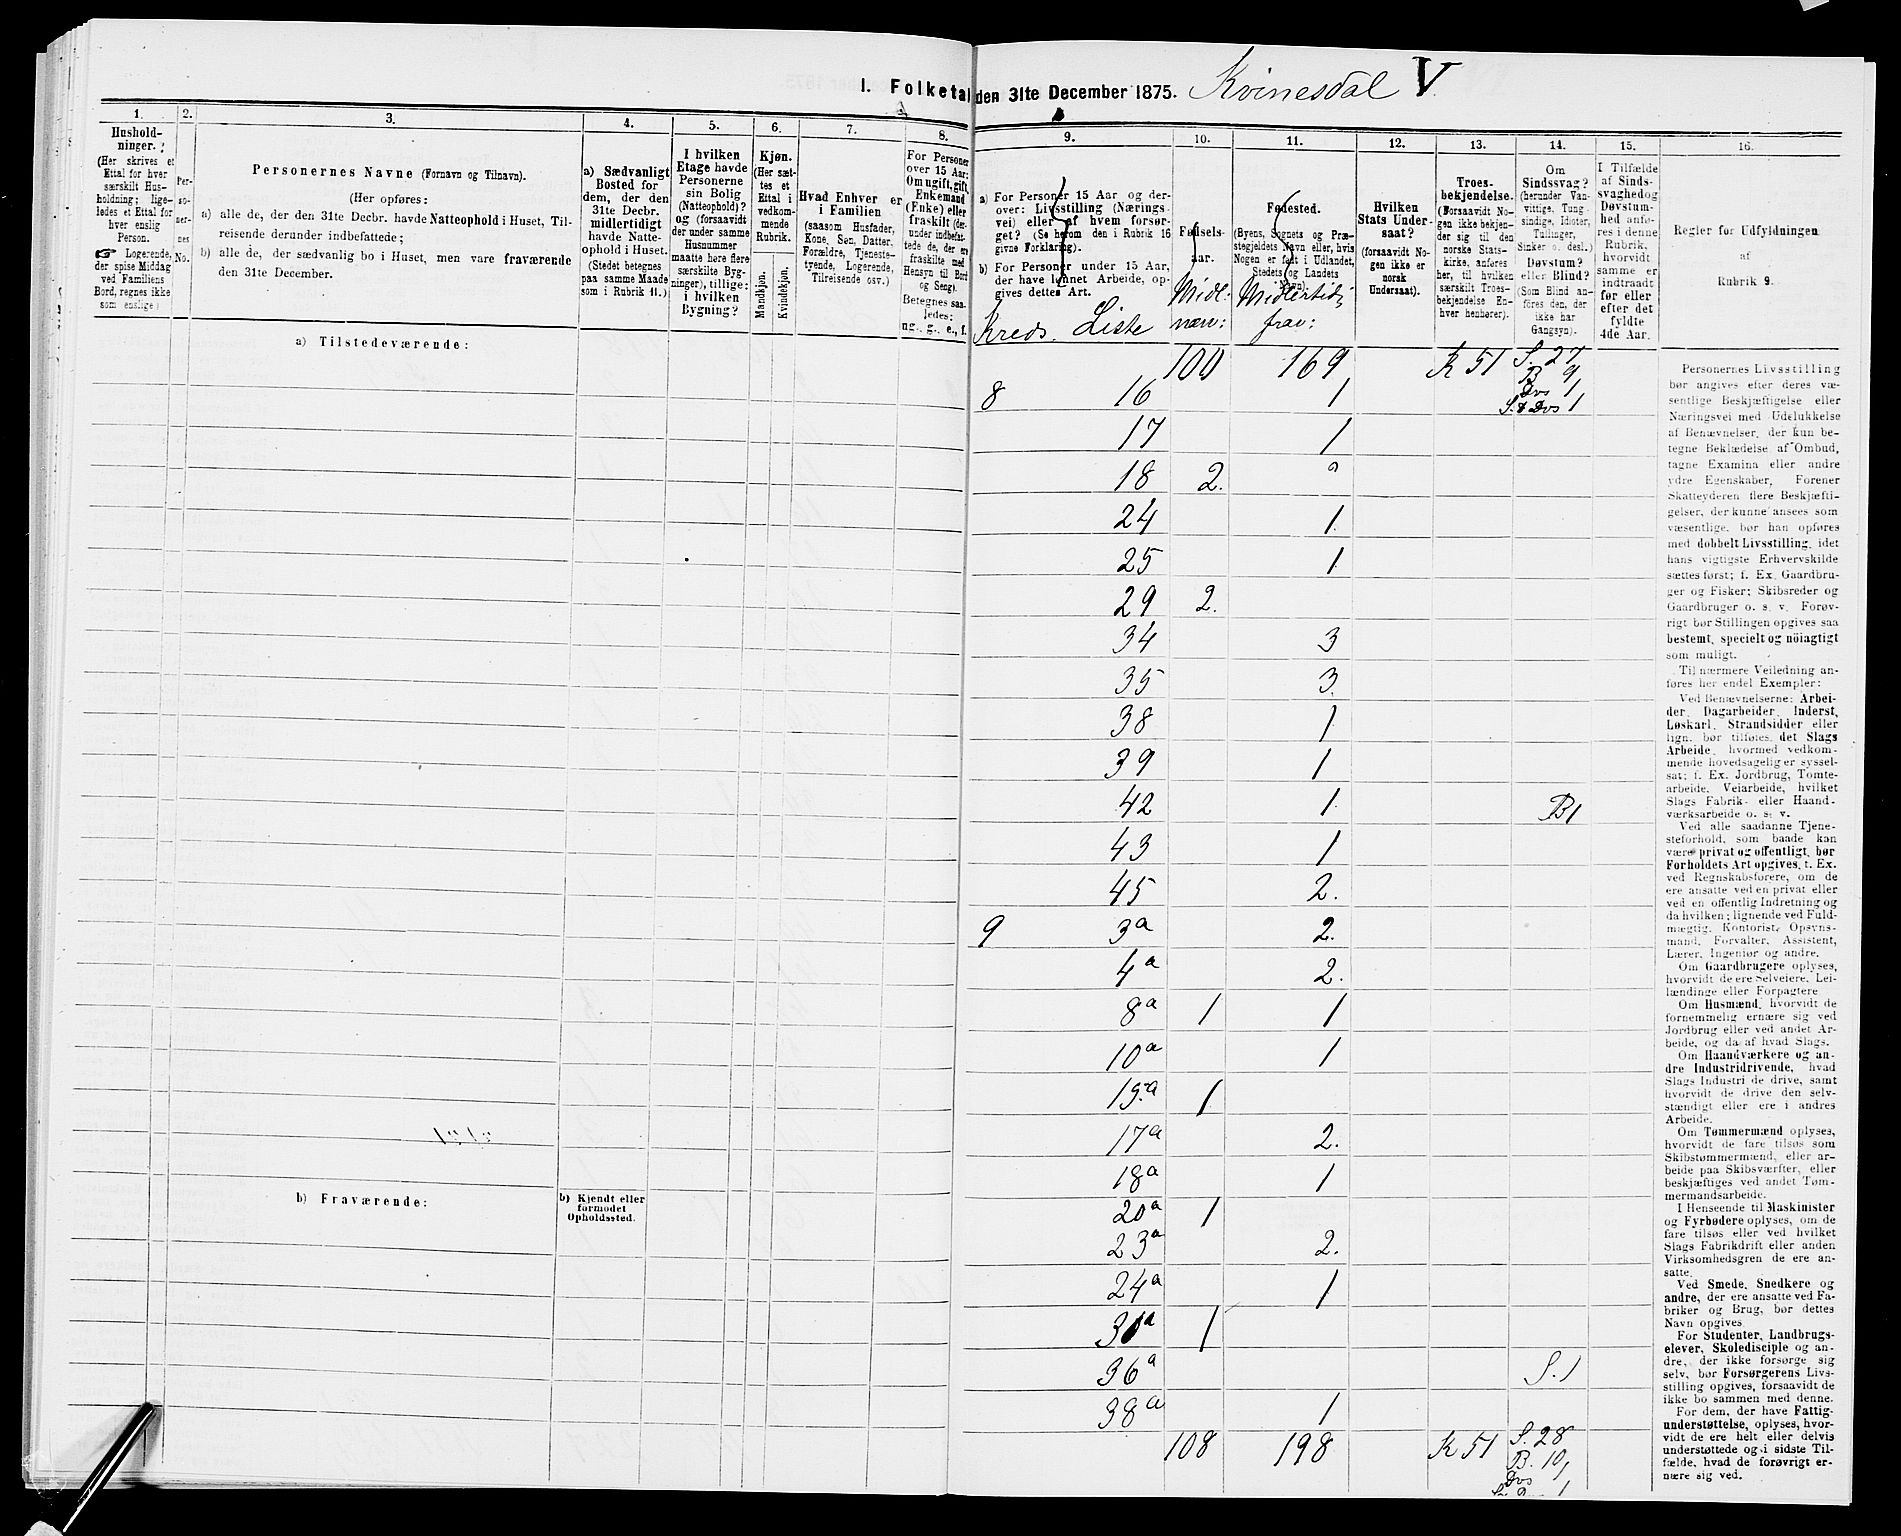 I. Folketal den 31te December 1875. Kvinesdal V
1.
Hushold-
ninger.
(Her skrives et
Ettal for hver
særskilt Hus-
holdning; lige-
ledes et Ettal for
hver enslig
Person.
☞ Logerende,
der spise Middag
ved Familiens
Bord, regnes ikke
som enslige.)
2.
Per-
so-
ner-
nes
No.
3.
Personernes Navne (Fornavn og Tilnavn).
(Her opføres:
a) alle de, der den 31te Decbr. havde Natteophold i Huset, Til-
reisende derunder indbefattede;
b) alle de, der sædvanlig bo i Huset, men vare fraværende
den 31te December.
4.
a) Sædvanligt
Bosted for
dem, der den
31te Decbr.
midlertidigt
havde Natte-
ophold i Huset.
(Stedet betegnes
paa samme Maade
som i Rubrik 11.)
5.
I hvilken
Etage havde
Personerne
sin Bolig
(Natteophold)?
og (forsaavidt
der under samme
Husnummer
maatte høre flere
særskilte Byg-
ninger), tillige:
i hvilken
Bygning?
6.
Kjøn.
(Her sæt-
tes et
Ettal i
vedkom-
mende
Rubrik.
Mandkjøn.
Kvindekjøn.
7.
Hvad Enhver er
i Familien
(saasom Husfader,
Kone, Søn, Datter,
Forældre, Tjeneste-
tyende, Logerende,
Tilreisende osv.)
8.
For Personer
over 15 Aar:
Om ugift, gift,
Enkemand
(Enke) eller
fraskilt (der-
under indbefat-
tede de, der ere
fraskilte med
Hensyn til Bord
og Seng).
Betegnes saa-
ledes:
ug., g., e., f.
9.
a) For Personer 15 Aar og der-
over: Livsstilling (Nærings-
vei) eller af hvem forsør-
get? (Se herom den i Rubrik 16
givne Forklaring).
b) For Personer under 15 Aar,
der have lønnet Arbeide, op-
gives dettes Art.
Kreds. Liste
10.
Fødsels-
aar.
Midl:
nærv:
11.
Fødested.
(Byens, Sognets og Præ-
stegjeldets Navn eller, hvis
Nogen er født i Udlandet,
Stedets og Landets
Navn).
Midlertidig
frav:
12.
Hvilken
Stats Under-
saat?
(forsaavidt No-
gen ikke er
norsk
Undersaat).
13.
Troes-
bekjendelse.
(Forsaavidt No-
gen ikke bekjen-
der sig til den
norske Stats-
kirke, anføres
her, til hvilken
særskilt Troes-
bekjendelse En-
hver henhører).
14.
Om
Sindssvag?
(herunder Van-
vittige, Tung-
sindige, Idioter,
Tullinger,
Sinker o. desl.)
Døvstum?
eller Blind?
(Som Blind an-
føres den, der
ikke har
Gangsyn).
15.
I Tilfælde
af Sinds-
svaghed og
Døvstum-
hed anfø-
res i denne
Rubrik,
hvorvidt
samme er
indtraadt
før eller
efter det
fyldte
4de Aar.
16.
Regler for Udfyldningen
af
Rubrik 9.
a) Tilstedeværende:
100 169 K 51 S. 27
B 9
Dvs 1
S. & Dvs 1
8 16 1
17 1
18 2. 2
24 1
25 1
29 2.
34 3
35 3
38 1
39 1
42 1 B1
43 1
45 2.
9 3a 2.
4a 2.
8a 1 1
10a 1
15.a 1
17a 2.
18a 1
b) Fraværende:
b) Kjendt eller
formodet
Opholdssted.
20a 1
23a 2.
24a 1
31a 1
36a S. 1
38a 1
108 198 K 51 S. 28
B. 10
Dvs 1
1
Personernes Livsstilling
bør angives efter deres væ-
sentlige Beskjæftigelse eller
Næringsvei med Udelukkelse
af Benævnelser, der kun be-
tegne Beklædelse af Ombud,
tagne Examina eller andre
ydre Egenskaber. Forener
Skatteyderen flere Beskjæfti-
gelser, der kunne ansees som
væsentlige, bør han opføres
med dobbelt Livsstilling, idet
hans vigtigste Erhvervskilde
sættes først; f. Ex. Gaardbru-
ger og Fisker; Skibsreder og
Gaardbruger o. s. v. Forøv-
rigt bør Stillingen opgives saa
bestemt, specielt og nöiagtigt
som muligt.
Til nærmere Veiledning an-
føres her endel Exempler:
Ved Benævnelserne: Arbei-
der, Dagarbeider, Inderst,
Løskarl, Strandsidder eller
lign. bør tilføies det Slags
Arbeide, hvormed vedkom-
mende hovedsagelig er syssel-
sat; f. Ex. Jordbrug, Tomte-
arbeide, Veiarbeide, hvilket
Slags Fabrik- eller Haand-
værksarbeide o. s. v.
Ved alle saadanne Tjene-
steforhold, som baade kan
være privat og offentligt, bør
Forholdets Art opgives, t. Ex.
ved Regnskabsførere, om de
ere ansatte ved en privat eller
ved en offentlig Indretning og
da hvilken; lignende ved Fuld-
mægtig, Kontorist, Opsyns-
mand, Forvalter, Assistent,
Lærer, Ingeniør og andre.
Om Gaardbrugere oplyses,
hvorvidt de ere Selveiere, Lei-
lændinge eller Forpagtere
Om Husmænd, hvorvidt de
fornemmelig ernære sig ved
Jordbrug eller ved andet Ar-
beide, og da af hvad Slags.
Om Haandværkere og an-
dre Industridrivende, hvad
Slags Industri de drive, samt
hvorvidt de drive den selv-
stændigt eller ere i andres
Arbeide.
Om Tømmermænd oplyses,
hvorvidt de fare tilsøs som
Skibstømmermænd, eller ar-
beide paa Skibsværfter, eller
beskjæftiges ved andet Tøm-
mermandsarbeide.
I Henseende til Maskinister
og Fyrbødere oplyses, om de
fare tilsøs eller ved hvilket
Slags Fabrikdrift eller anden
Virksomhedsgren de ere an-
satte.
Ved Smede, Snedkere og
andre, der ere ansatte ved Fa-
briker og Brug, bør dettes
Navn opgives.
For Studenter, Landbrugs-
elever, Skoledisciple og an-
dre, der ikke forsørge sig
selv, bør Forsørgerens Livs-
stilling opgives, forsaavidt de
ikke bo sammen med denne.
For dem, der have Fattig-
understøttelse, oplyses, hvor-
vidt de ere helt eller delvis
understøttede og i sidste Til-
fælde, hvad de forøvrigt er-
nære sig ved.